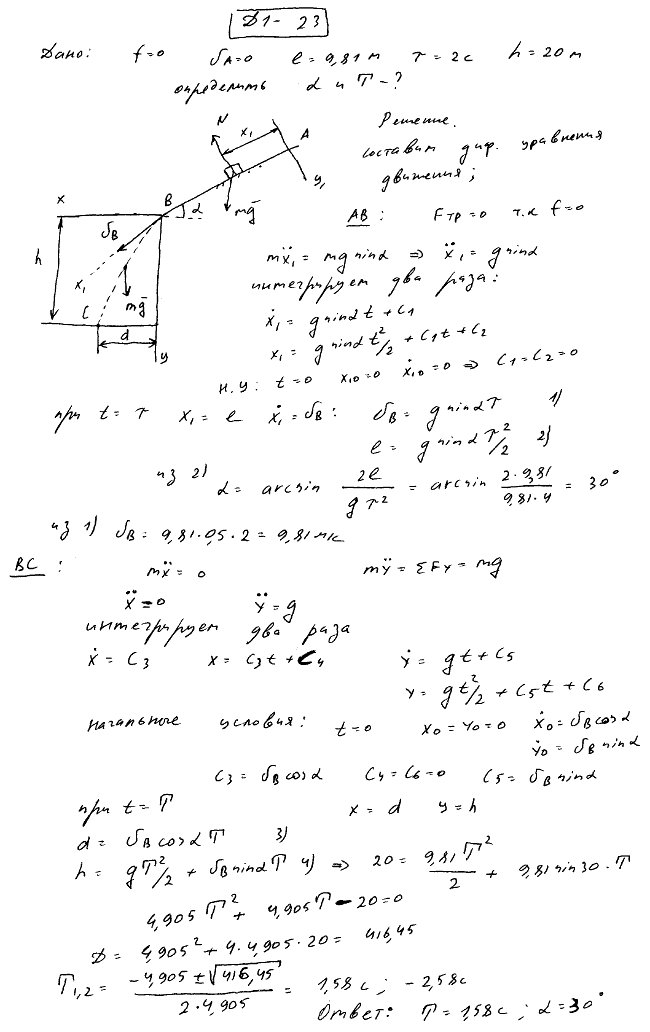 Д1-23
Дано: f=0 υA=0 l=9,81м τ=2с h=20м
определить α и T-?
Решение.
Составим диф. уравнения
движения;
N x₁ A y₁ B α mg̅ x υB h x₁ C mg̅ d y
AB: Fтр=0 т.к f=0
mẍ₁ = mg sinα ⇒ ẍ₁ = g sinα
интегрируем два раза:
ẋ₁ = g sinα t + C₁
x₁ = g sinα t²/2 + C₁t + C₂
н.у: t=0 x₁₀=0 ẋ₁₀=0 ⇒ C₁=C₂=0
при t=τ x₁=l ẋ₁=υB: υB = g sinα τ 1)
l = g sinα τ²/2 2)
из 2) α = arcsin 2l/gτ² = arcsin 2·9,81/9,81·4 = 30°
из 1) υB = 9,81·0,5·2 = 9,81 м/с
BC: mẍ = 0 mÿ = ΣFy = mg
ẍ=0 ÿ=g
интегрируем два раза
ẋ = C₃ x = C₃t + C₄ ẏ = gt + C₅
y = gt²/2 + C₅t + C₆
начальные условия: t=0 x₀=y₀=0 ẋ₀=υB cosα
ẏ₀ = υB sinα
C₃ = υB cosα C₄=C₆=0 C₅ = υB sinα
при t=T x=d y=h
d = υB cosα T 3)
h = gT²/2 + υB sinα T 4) ⇒ 20 = 9,81T²/2 + 9,81 sin30·T
4,905T² + 4,905T - 20=0
D = 4,905² + 4·4,905·20 = 416,45
T₁,₂ = -4,905 ± √416,45/2·4,905 = 1,58с; -2,58с
Ответ: T=1,58с; α=30°